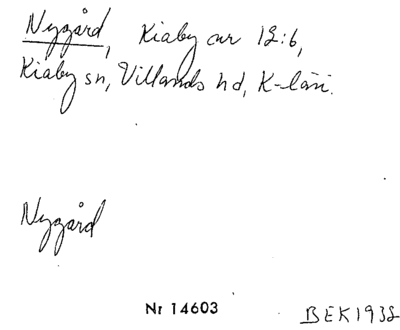 Nygård, Kiaby ar 12:6,
Kiaby sn, Villands hd, K-län.
Nygård
Nr 14603
BEK 1932